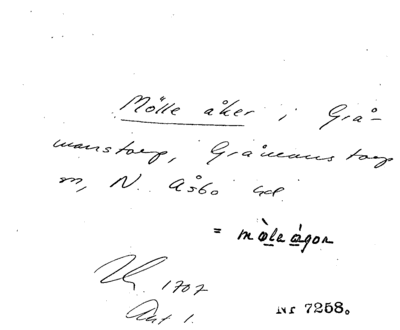 Mölle åker i Grå-
manstorp, Gråmanstorp
sn, N. Åsbo hd.
= mòlaågon
1707
Akt 1.
Nr 7258.